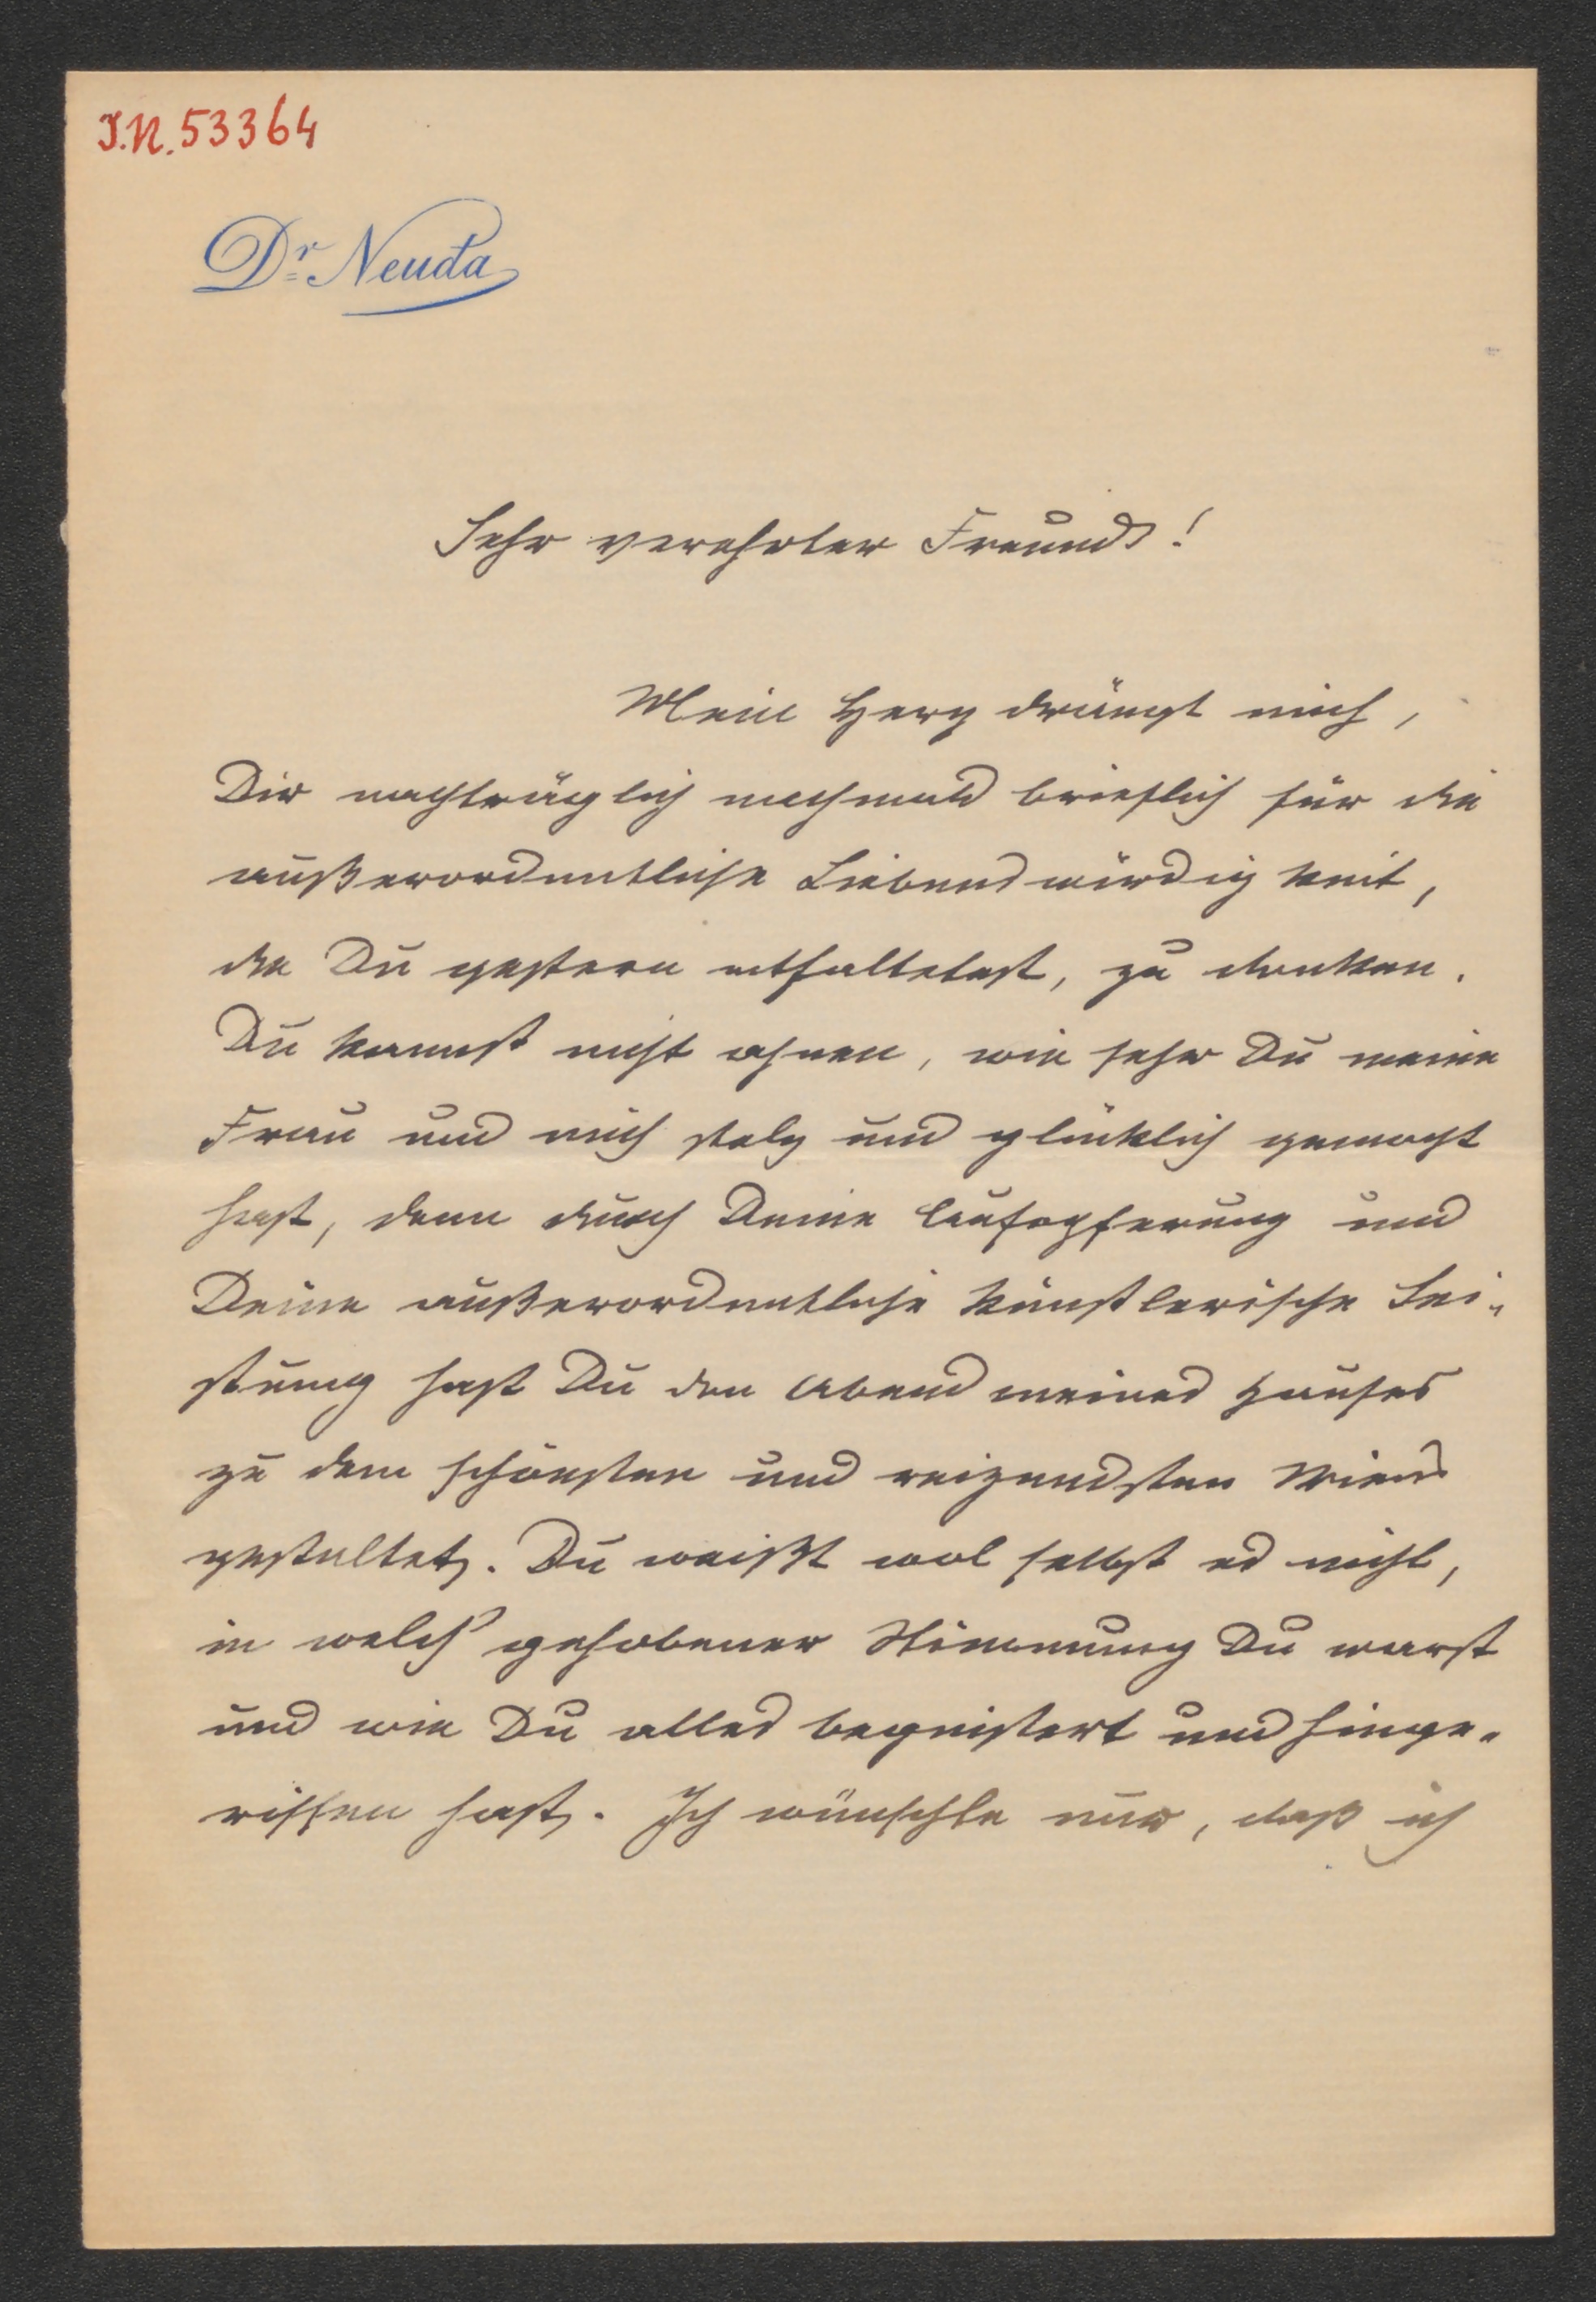 I.N. 53364
Dr. Neuda
Sehr verehrter Freund!
Mein Herz drängt mich,
Dir nachträglich nochmals brieflich für die
außerordentliche Liebenswürdigkeit,
die Du gestern entfaltetest, zu danken.
Du kannst nicht ahnen, wie sehr Du meine
Frau und mich stolz und glücklich gemacht
hast, denn durch Deine Aufopferung und
Deine außerordentliche künstlerische Lei-
stung hast Du den Abend meines Hauses
zu dem schönsten und reizendsten Wiens
gestaltet. Du weißt wol selbst es nicht,
in welch' gehobener Stimmung Du warst
und wie Du alles begeistert und hinge-
rissen hast. Ich wünschte nur, daß ich